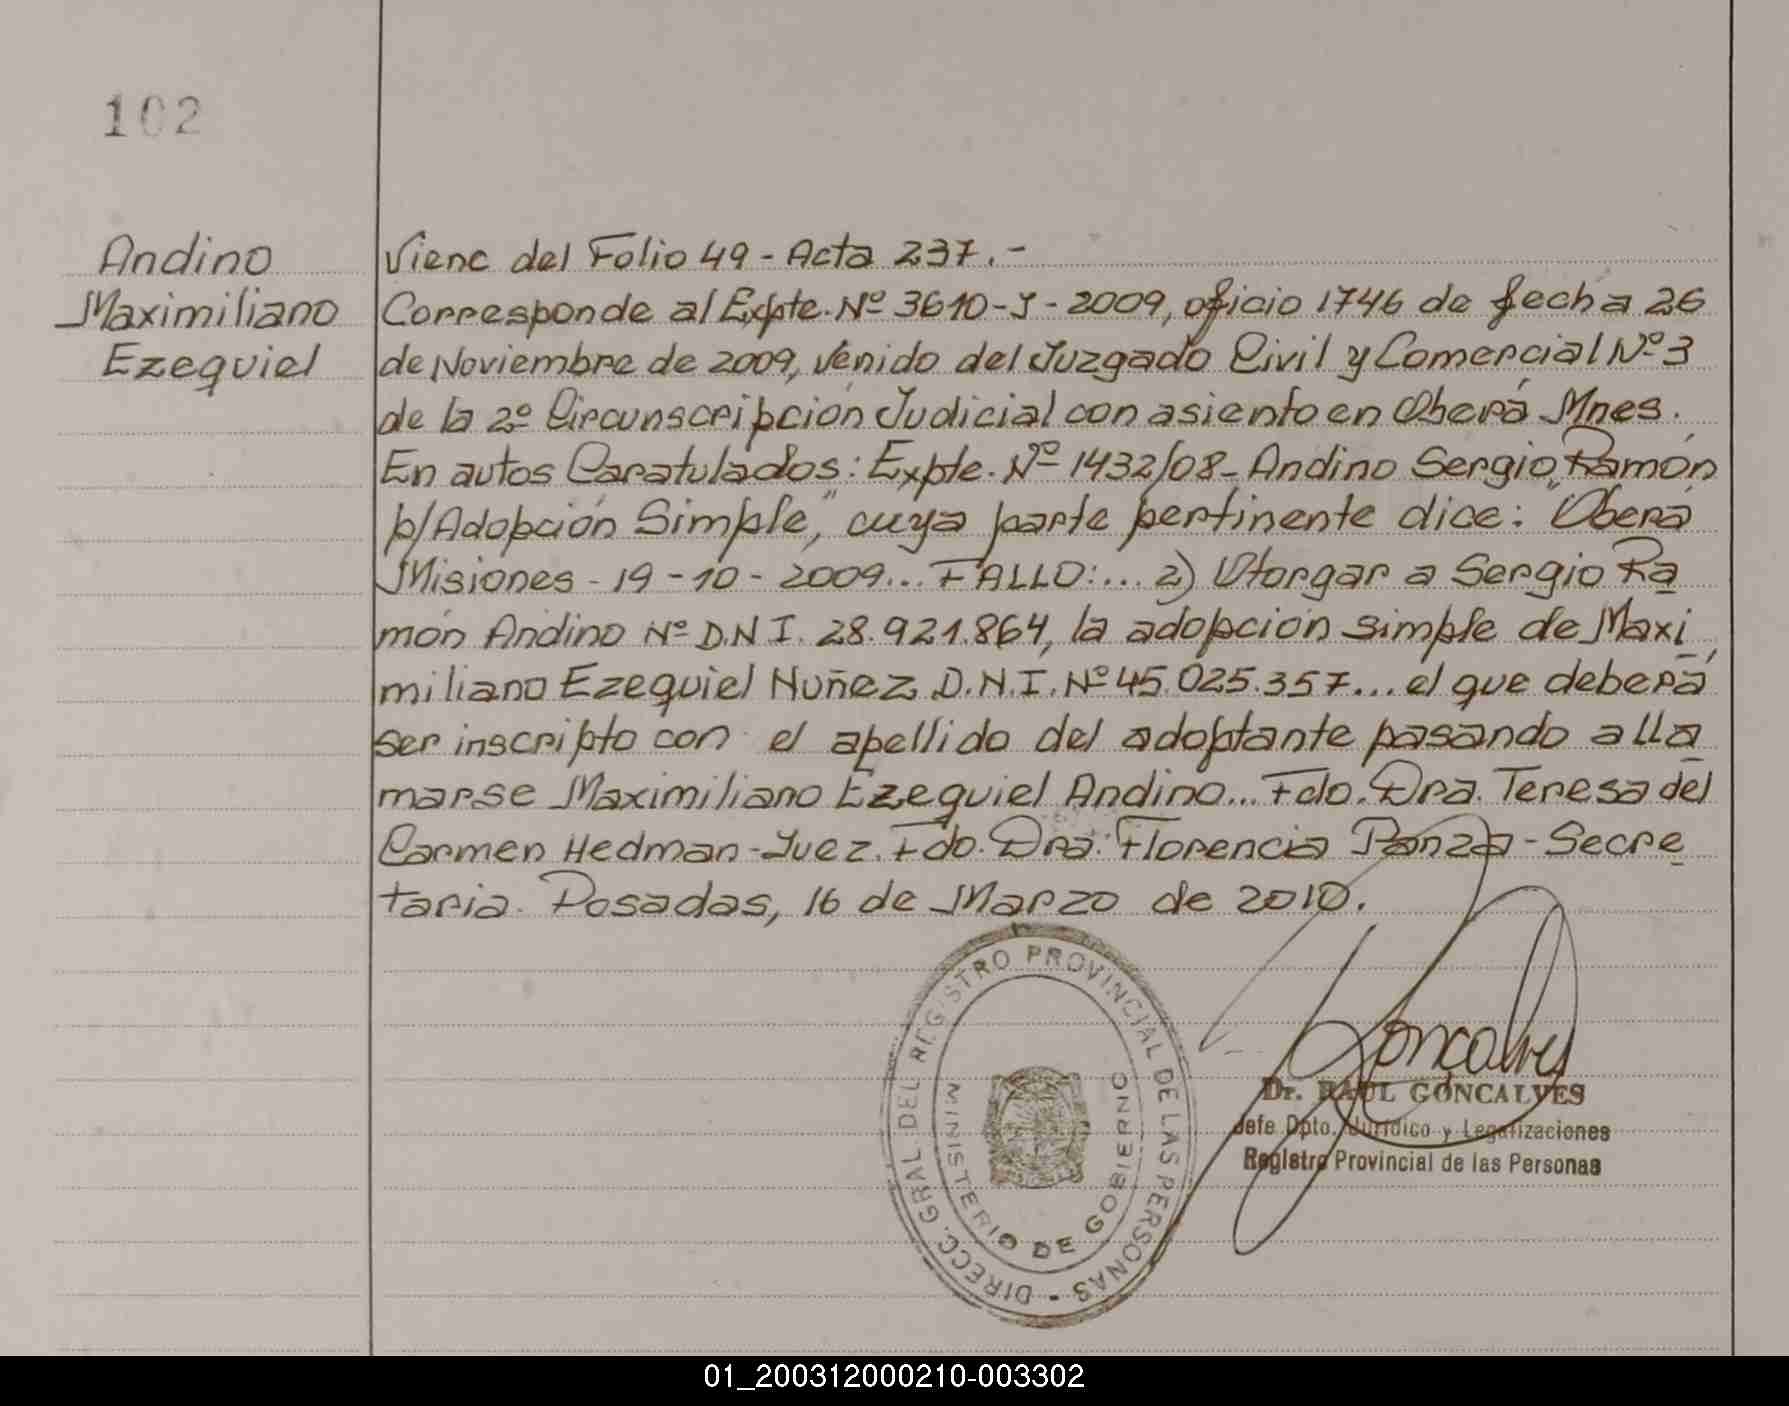 102
Andino
Maximiliano
Ezequiel
Viene del Folio 49 - Acta 237.-
Corresponde al Expte. Nº 3610-J-2009, oficio 1746 de fecha 26
de Noviembre de 2009, venido del Juzgado Civil y Comercial Nº 3
de la 2º Circunscripción Judicial con asiento en Oberá Mnes.
En autos Caratulados: Expte. Nº 1432/08 - Andino Sergio Ramón
p/Adopción Simple", cuya parte pertinente dice: "Oberá
Misiones - 19-10-2009... FALLO:... 2) Otorgar a Sergio Ra
món Andino Nº D.N I. 28.921.864, la adopción simple de Maxi
miliano Ezequiel Nuñez D.N.I. Nº 45.025.357... el que deberá
ser inscripto con el apellido del adoptante pasando a lla
marse Maximiliano Ezequiel Andino... Fdo. Dra. Teresa del
Carmen Hedman - Juez. Fdo. Dra. Florencia Panza - Secre
taria. Posadas, 16 de Marzo de 2010.
DIRECC. GRAL DEL REGISTRO PROVINCIAL DE LAS PERSONAS -
MINISTERIO DE GOBIERNO
Goncalves
Dr. RAUL GONCALVES
Jefe Dpto. Jurídico y Legalizaciones
Registro Provincial de las Personas
01_200312000210-003302